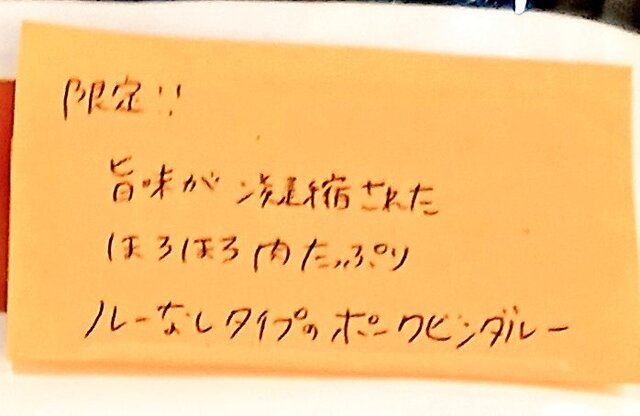 限定!!
旨味が凝縮された
ほろほろ肉たっぷり
ルーなしタイプのポークビンダルー